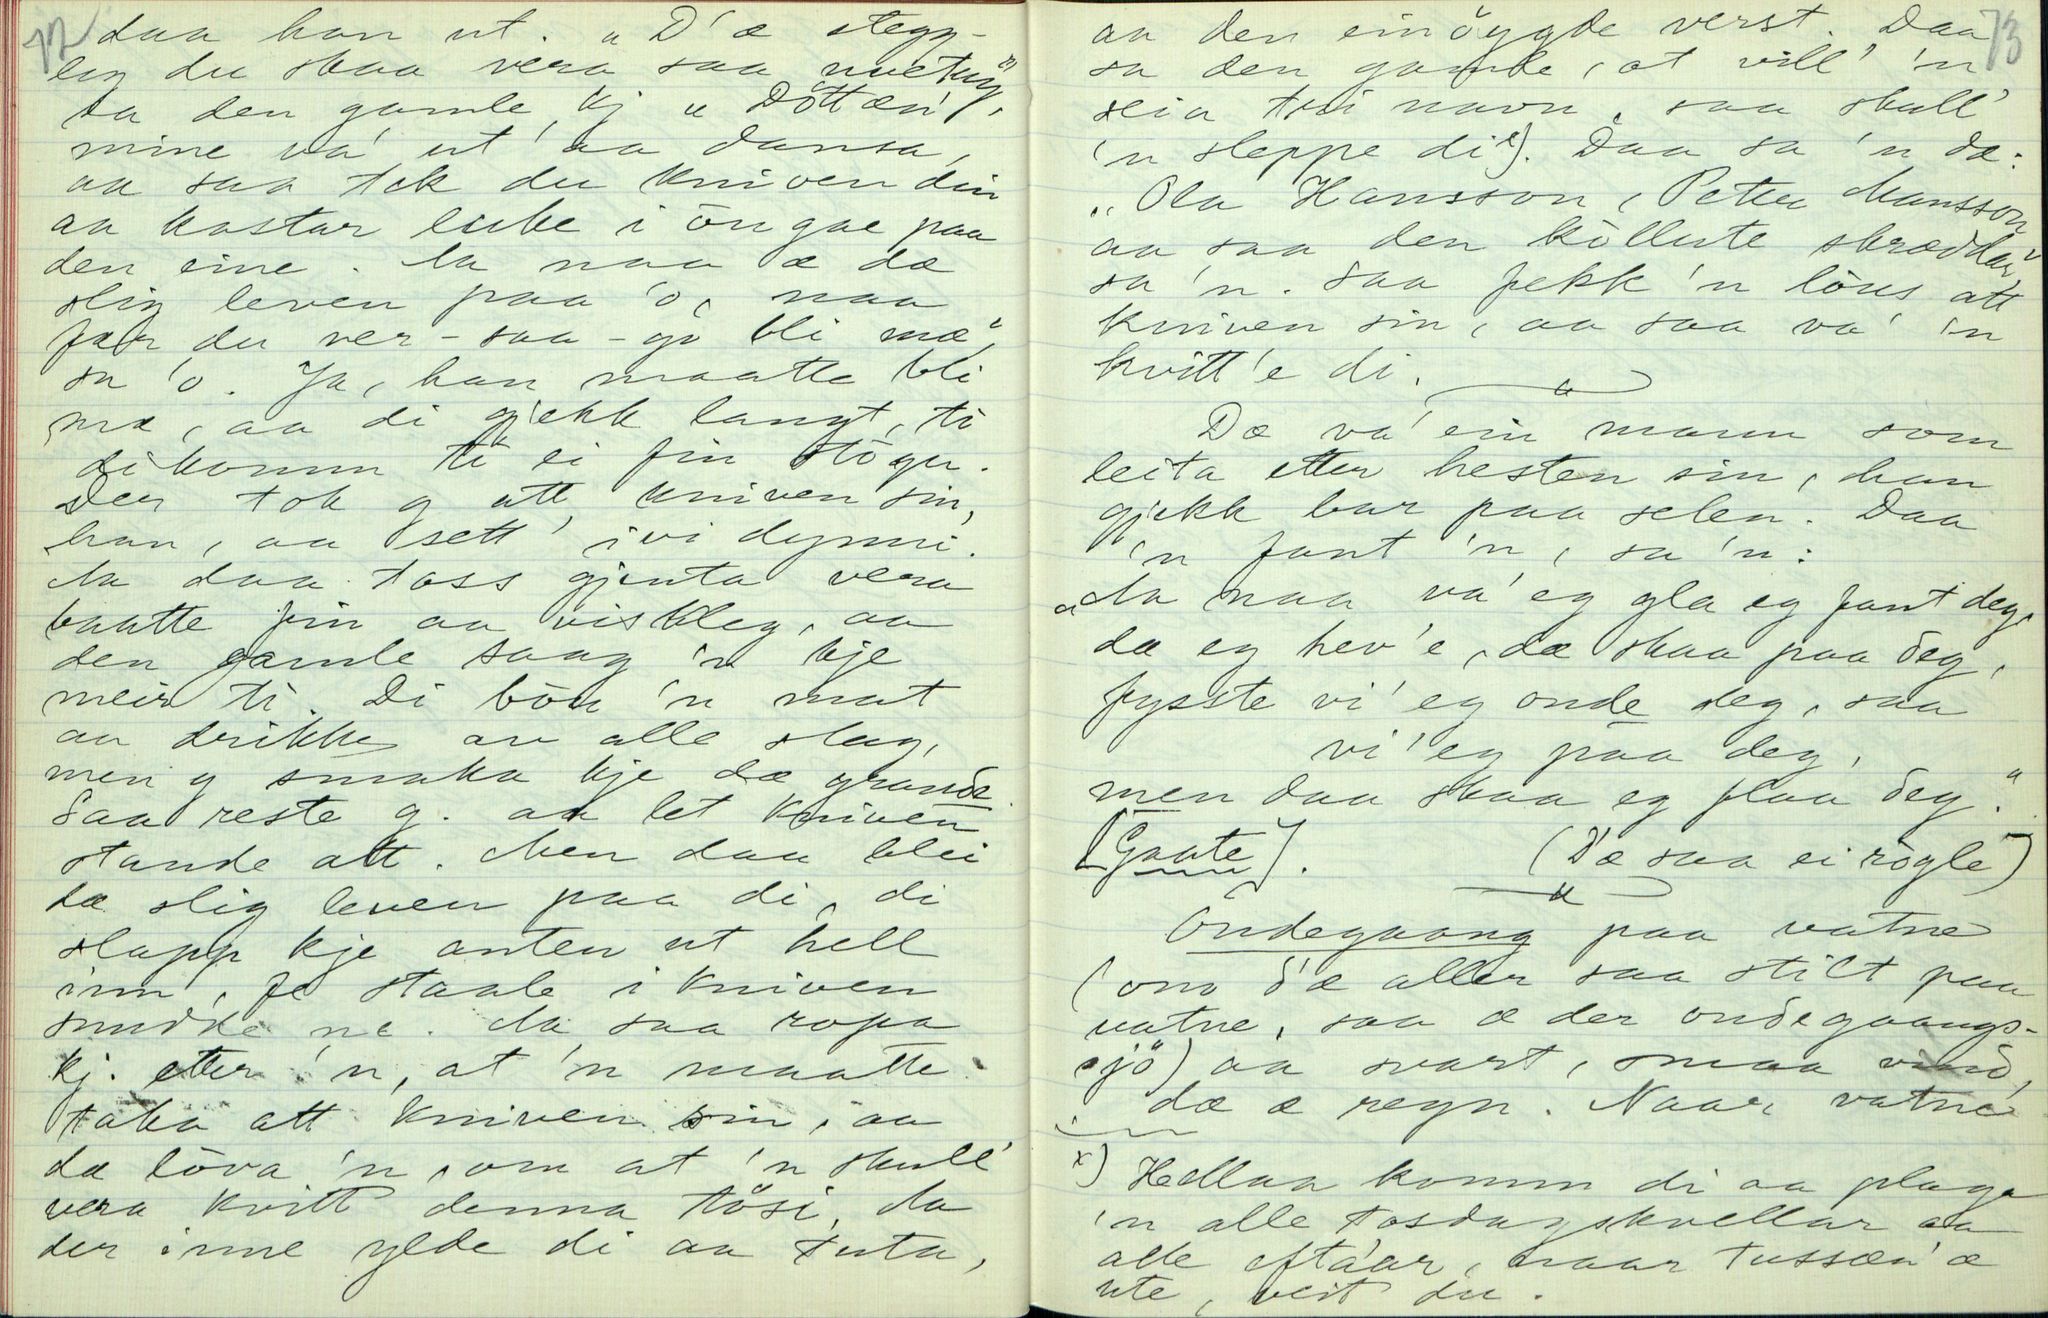 72
daa han ut. „D'æ stegg-
leg du skaa vera saa nuetug",
sa den gamle kj. „Döttæn'
mine va' ut' aa dansa,
aa saa tok du kniven din
aa kastar like i öugae paa
den eine. Aa naa æ dæ
slig leven paa 'o, naa
fær du ver-saa-go bli mæ",
sa 'o. Ja, han maatte bli
mæ, aa di gjekk langt, ti
di komm te ei fin stögu.
Der tok g att kniven sin,
han, aa sett' 'ivi dynni.
Aa daa toss gjenta vera
baatte fin aa viskleg, aa
den gamle saag 'n kje
meir ti. Di böu 'n mat
aa drikke av alle slag,
men g smaka kje dæ grande.
Saa reste g. aa let kniven
stande att. Men daa blei
dæ slig leven paa di, di
slapp kje anten ut hell
inn, fe staale i kniven
snudde ne. Aa saa ropa
kj. etter 'n, at 'n maatte
taka att kniven sin, aa
dæ löva 'n, om at 'n skull'
vera kvitt denna tösi, da
der inne ylde di aa tuta,
73
aa den einöygde verst. Daa
sa den gamle, at vill' 'n
seia tri navn, saa skull'
'n sleppe di x). Daa sa 'n dæ:
„Ola Hansson, Petter Mansson
aa saa den köllute skræddar",
sa 'n. Saa fekk 'n löus att
kniven sin, aa saa va' 'n
kvitt 'e di.
Dæ va' ein mann som
leita etter hesten sin, han
gjekk bar paa selen. Daa
'n fant 'n, sa 'n:
„Aa naa va' eg gla eg fant deg,
dæ eg hev'e, dæ skaa paa deg,
fysste vi' eg onde deg, saa
vi' eg paa deg,
men daa skaa eg flaa deg."
[Gaate]. (D'æ saa ei rögle)
Ondegaang paa vatne
(om d'æ aller saa stilt paa
vatne, saa æ der ondegaangs-
sjö) aa svart, smaa vind,
dæ æ regn. Naar vatne
x) Hellaa komm di aa plaga
'n alle tosdagskvellar aa
alle eftaar, naar tussæn' æ
ute, veit du.